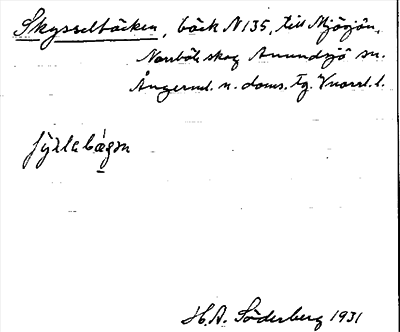 Skysselbäcken, bäck N 135, till Mjösjön,
Norrböle skog Anundsjö sn.
Ångerml. n. doms. tg. Vnorrl. l.
fýslabágɔn
H.A. Söderberg 1931